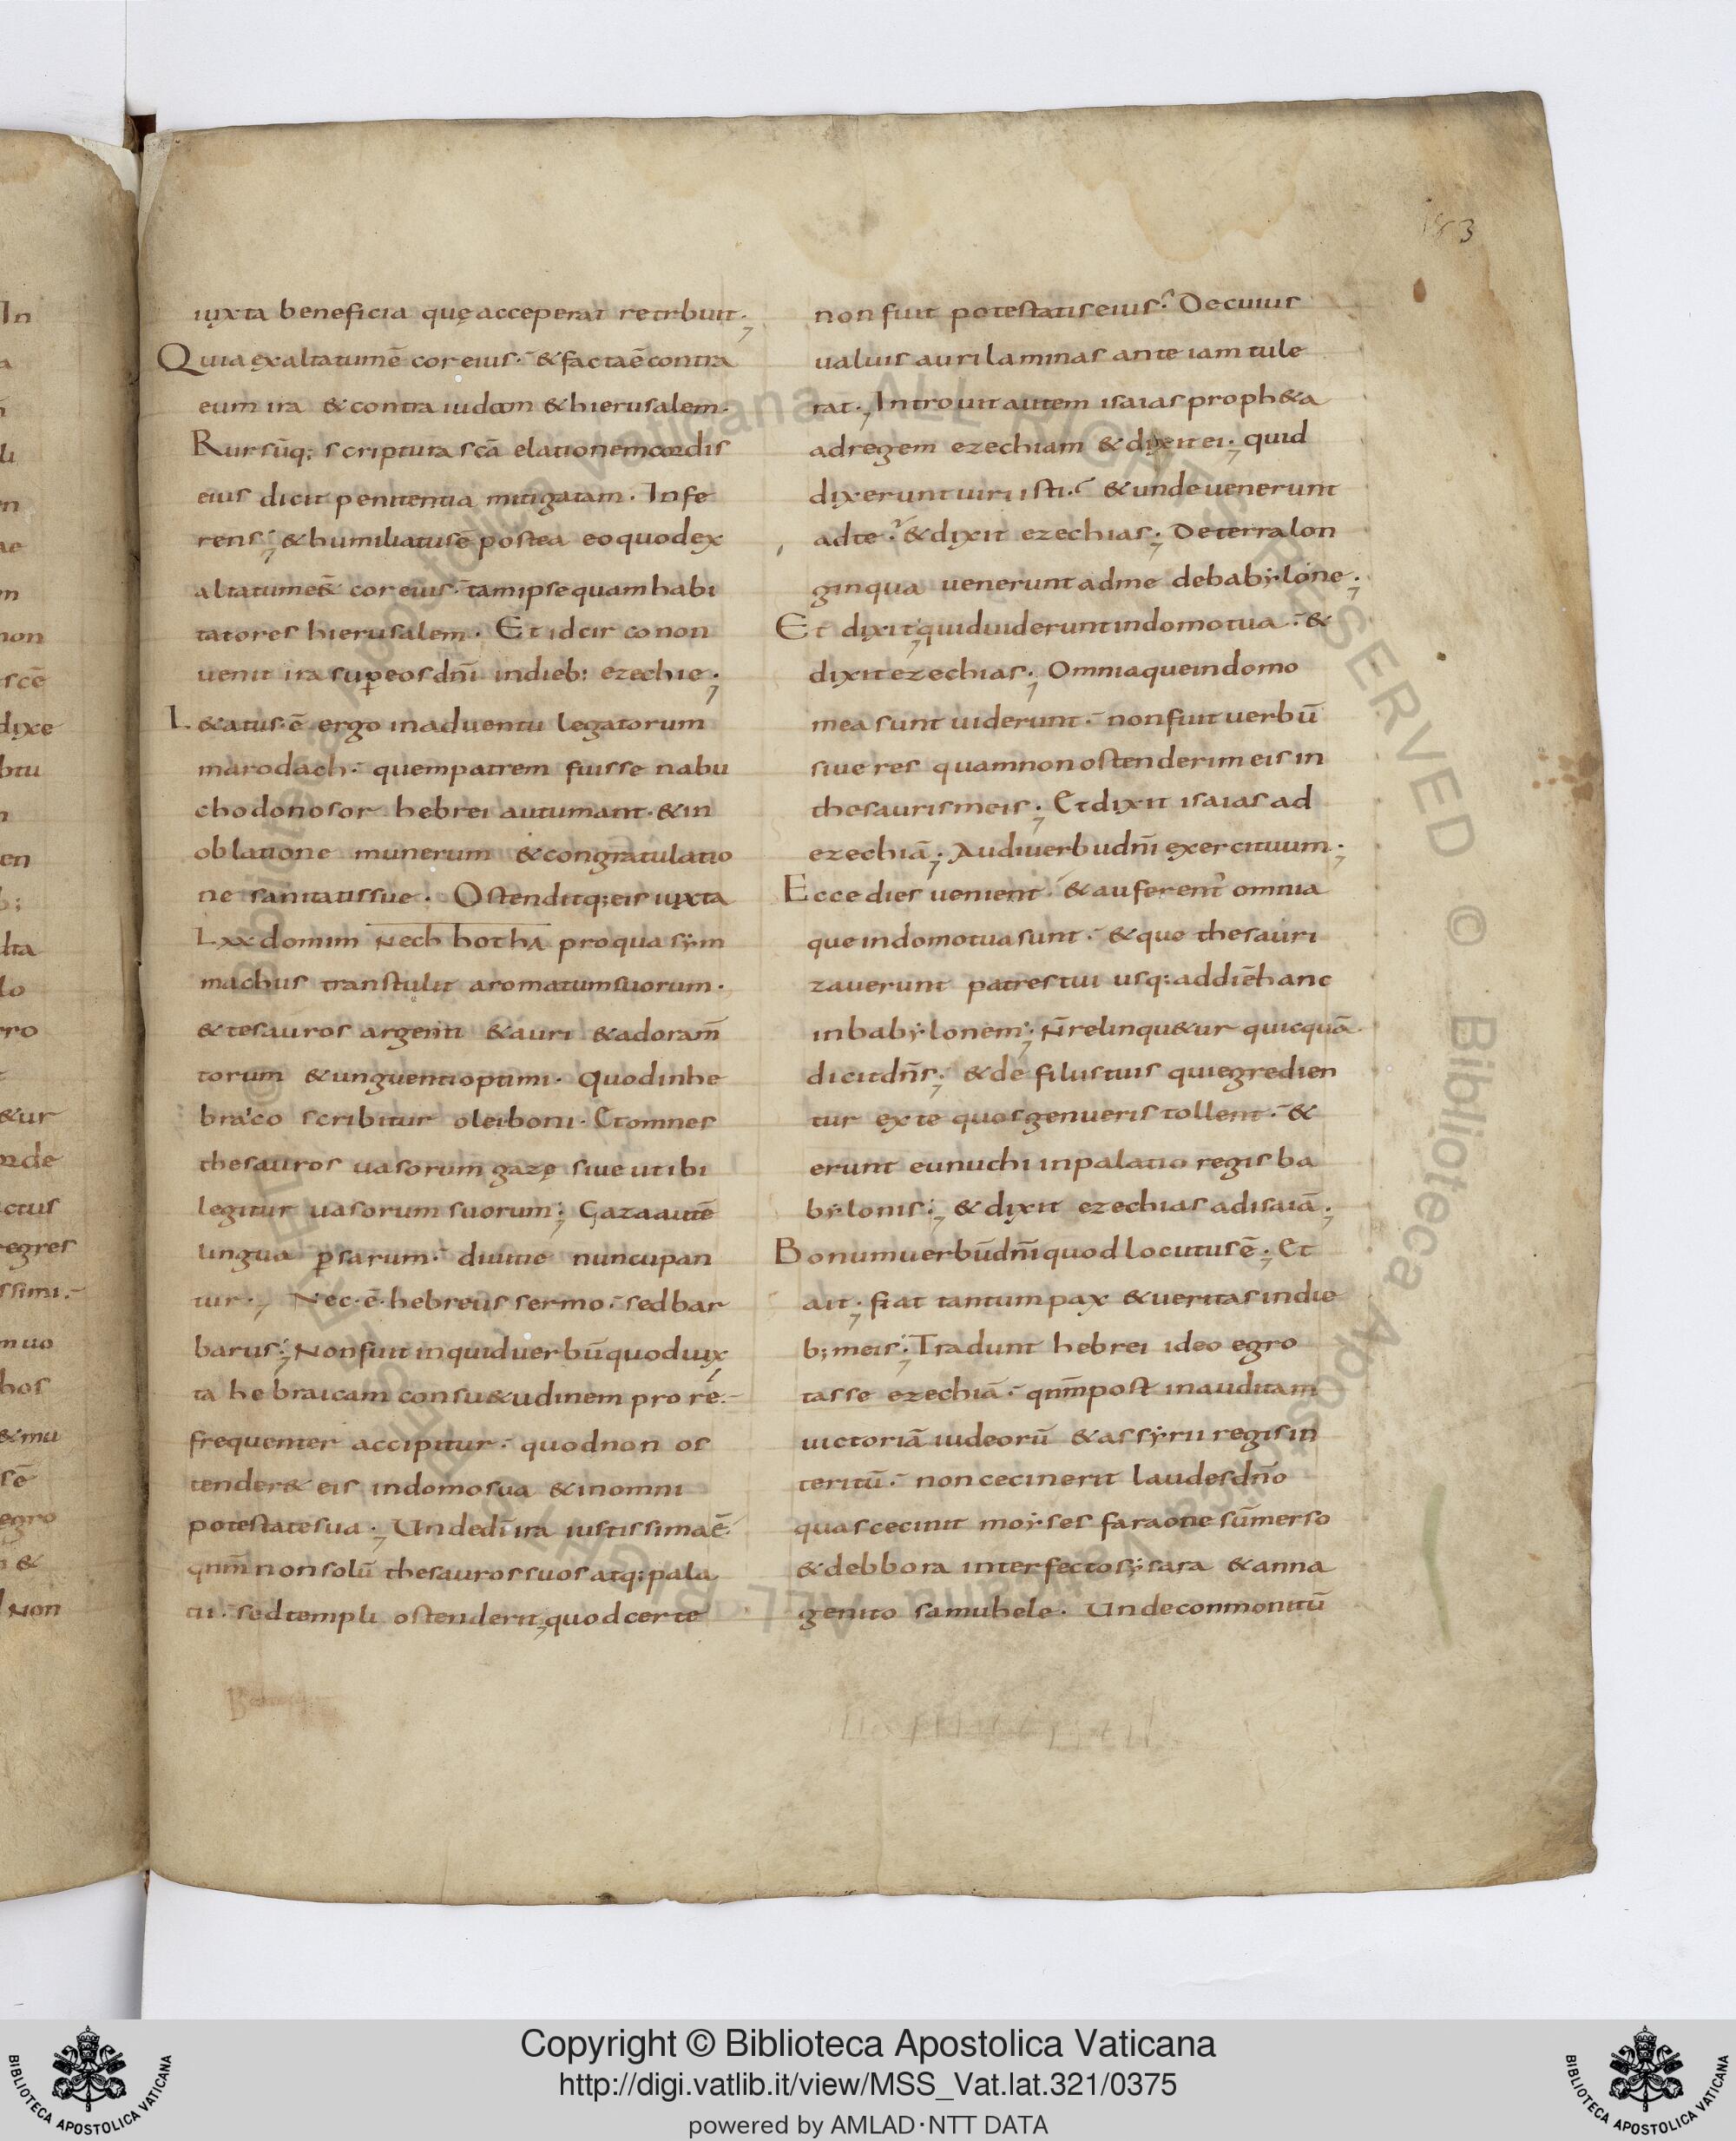 183
In
li
non
scē
dixe
en
lta
lo
rro
&ur
ctus
egres
ssimi.
hos
&mu
sē
egro
&
Non
iuxta beneficia quę acceperat retrbuit.;
Quia exaltatumē cor eius. & factaē contra
eum ira & contra iudam & hierusalem.
Rursūq; scriptura scā elationem cordis
eius dicit penitentia mitigatam. Infe
rens; & humiliatusē postea eo quod ex
altatumes& cor eius. tam ipse quam habi
tatores hierusalem. Et idcirco non
uenit ira sup eos dn̄i in dieb; ezechie;
L&atus.ē ergo in aduentu legatorum
marodach. quem patrem fuisse nabu
chodonosor hebrei autumant. & in
oblatione munerum & congratulatio
ne sanitatis sue. Ostenditq; eis iuxta
Lxx domim Nech hotha pro qua sẏm
machus transtulit aromatum suorum.
& tesauros argenti & auri & adoram̄
torum & unguenti optimi. Quod in he
braico scribitur olei boni. Et omnes
thesauros uasorum gazę siue ut ibi
legitur uasorum suorum; Gaza autē
lingua psarum. diuitie nuncupan
tur.; Nec.ē. hebreus sermo. sed bar
barus; Non fuit inquid uerbū quod iux
ta hebraicam consu&udinem pro re.
frequenter accipitur. quod non os
tender& eis in domo sua & in omni
potestate sua; Unde dī ira iustissimaē.
qnm̄ non solū thesauros suos atq; pala
tii. sed templi ostenderit; quod certe
non fuit potestatis eius. De cuius
ualuis auri laminas ante iam tule
rat.; Introiuit autem isaias proph&a
ad regem ezechiam & dixit ei; quid
dixerunt uiri isti. & unde uenerunt
ad te. & dixit ezechias; De terra lon
ginqua uenerunt ad me de babẏlone;
Et dixit; quid uiderunt in domo tua. &
dixit ezechias; Omnia que in domo
mea sunt uiderunt. non fuit uerbū
siue res quam non ostenderim eis in
thesauris meis; Et dixit isaias ad
ezechiā; Audi uerbu dn̄i exercituum;
Ecce dies uenient. & auferent omnia
que in domo tua sunt. & que thesauri
zauerunt patres tui usq; ad diē hanc
in babẏlonem; N̄ relinqu&ur quicquā
dicit dn̄s; & de filiis tuis qui egredien
tur ex te quos genueris tollent. &
erunt eunuchi in palatio regis ba
bẏlonis; & dixit ezechias ad isaiā;
Bonum uerbū dn̄i quod locutus ē; Et
ait; fiat tantum pax & ueritas in die
b; meis; Tradunt hebrei ideo egro
tasse ezechiā. qnm̄ post inauditam
uictoriā iudeorū & assẏrii regis in
teritū. non cecinerit laudes dn̄o
quas cecinit moẏses faraone sūmerso
& debbora interfecto sẏsara & anna
genito samuhele. Unde conmonitū
Copyright © Biblioteca Apostolica Vaticana
http://digi.vatlib.it/view/MSS_Vat.lat.321/0375
powered by AMLAD·NTT DATA
BIBLIOTECA APOSTOLICA VATICANA
BIBLIOTECA APOSTOLICA VATICANA
© Biblioteca Apostolica Vaticana ALL RIGHTS RESERVED © Biblioteca Apostolica Vaticana ALL RIGHTS RESERVED